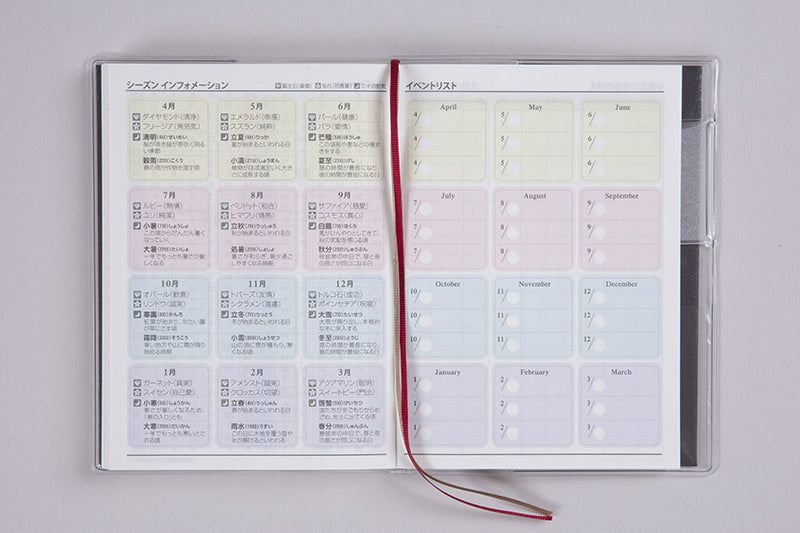 シーズン インフォメーション
誕生石(象徴) 旬花(花言葉) 二十四節気
4月
ダイヤモンド(清浄)
フリージア(無邪気)
清明(4日)せいめい
桜が咲き緑が芽吹く明るい季節
穀雨(20日)こくう
春の雨が作物を潤す頃
5月
エメラルド(幸福)
スズラン(純粋)
立夏(5日)りっか
夏が始まるといわれる日
小満(21日)しょうまん
植物がほぼ満足いく大きさに成長する頃
6月
パール(健康)
バラ(愛情)
芒種(5日)ぼうしゅ
この頃稲や麦などの種まきをする
夏至(21日)げし
昼の時間が最長になり、夜の時間が最短になる日
7月
ルビー(熱情)
ユリ(純潔)
小暑(7日)しょうしょ
この頃からだんだん暑くなっていく
大暑(22日)たいしょ
一年でもっとも暑さが厳しくなる
8月
ペリドット(和合)
ヒマワリ(情熱)
立秋(7日)りっしゅう
秋が始まるといわれる日
処暑(23日)しょしょ
暑さが和らぎ、朝夕過ごしやすくなる時期
9月
サファイア(慈愛)
コスモス(真心)
白露(7日)はくろ
風がひんやりとしてきて、秋の気配を感じる頃
秋分(23日)しゅうぶん
秋彼岸の中日で、昼と夜の長さが同じになる日
10月
オパール(歓喜)
リンドウ(誠実)
寒露(8日)かんろ
紅葉が始まり、冷たい露が草にさす頃
霜降(23日)そうこう
寒い地方や山に霜が降り始める時期
11月
トパーズ(友情)
シクラメン(遠慮)
立冬(7日)りっとう
冬が始まるといわれる日
小雪(22日)しょうせつ
山の頂に雪が積もり、寒くなる頃
12月
トルコ石(成功)
ポインセチア(祝福)
大雪(7日)たいせつ
大雪が降り出し、本格的な冬に突入する
冬至(22日)とうじ
夜の時間が最長になり、昼の時間が最短になる日
1月
ガーネット(真実)
スイセン(自己愛)
小寒(5日)しょうかん
寒さが厳しくなるため、「寒の入り」とも
大寒(20日)だいかん
一年でもっとも寒いとされる頃
2月
アメシスト(誠実)
クロッカス(切望)
立春(4日)りっしゅん
春が始まるといわれる日
雨水(19日)うすい
この日に大地を覆う雪や氷が解けるといわれる
3月
アクアマリン(聡明)
スイートピー(門出)
啓蟄(5日)けいちつ
虫たちが冬ごもりからめざめ、地上に出てくる頃
春分(20日)しゅんぶん
春彼岸の中日で、昼と夜の長さが同じになる日
イベントリスト
April
4/
4/
4/
May
5/
5/
5/
June
6/
6/
6/
July
7/
7/
7/
August
8/
8/
8/
September
9/
9/
9/
October
10/
10/
10/
November
11/
11/
11/
December
12/
12/
12/
January
1/
1/
1/
February
2/
2/
2/
March
3/
3/
3/